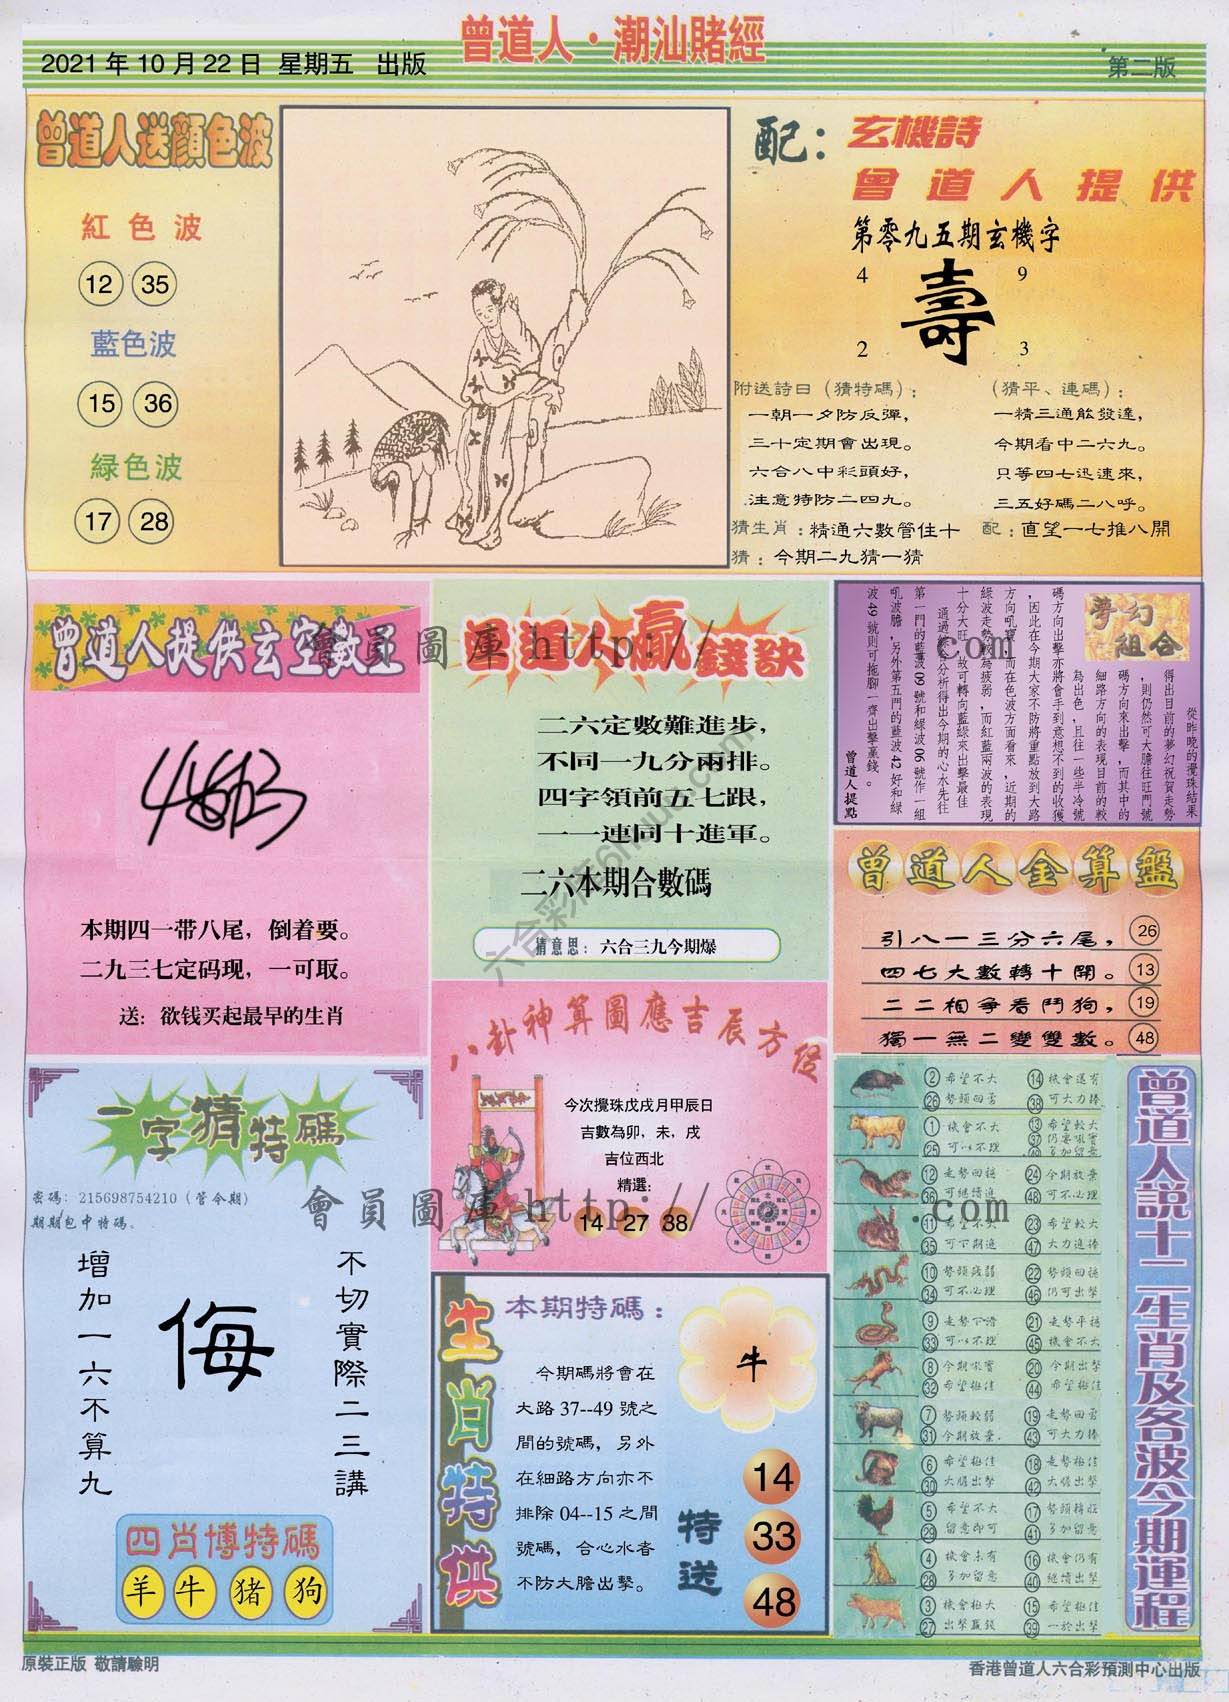 曾道人·潮汕賭經
2021 年 10 月 22 日 星期五 出版
第二版
曾道人送顏色波
紅色波
12 35
藍色波
15 36
緑色波
17 28
配：玄機詩
曾道人提供
第零九五期玄機字
4 9
壽
2 3
附送詩日（猜特碼）：
一朝一夕防反彈，
三十定期會出現。
六合八中彩頭好，
注意特防二四九。
（猜平、連碼）：
一精三通能發達，
今期看中二六九。
只等四七迅速來，
三五好碼二八呼。
猜生肖：精通六數管住十
配：直望一七推八開
猜：今期二九猜一猜
曾道人提供玄空數王
本期四一带八尾，倒着要。
二九三七定码现，一可取。
送：欲钱买起最早的生肖
曾道人贏錢訣
二六定數難進步，
不同一九分兩排。
四字領前五七跟，
一一連同十進軍。
二六本期合數碼
猜意思：六合三九今期爆
會員圖庫 http:// .com
夢幻組合
從昨晚的攪珠結果
得出目前的夢幻祝賀走勢
，則仍然可大膽往旺門號
碼方向來出擊，而其中的
細路方向的表現目前的較
為出色，且往一些半冷號
碼方向出擊亦將會手到意想不到的收獲
，因此在今期大家不防將重點放到大路
方向吼寶，而在色波方面看來，近期的
綠波走勢較為疲弱，而紅藍兩波的表現
十分大旺，故可轉向藍綠來出擊最佳
通過綜合分析得出今期的心水先往
第一門的藍波 09 號和綠波 06 號作一組
吼波膽，另外第五門的藍波 42 好和綠
波 49 號則可拖腳一齊出擊贏錢。
曾道人提點
曾道人金算盤
引八一三分六尾， 26
四七大數轉十開。 13
二二相爭看鬥狗， 19
獨一無二變雙數。 48
八卦神算圖應吉辰方位
今次攪珠戊戌月甲辰日
吉數為卯，未，戌
吉位西北
精選：
14 27 38
會員圖庫 http:// .com
一字猜特碼
密碼：215698754210（管今期）
期期包中特碼。
不切實際二三講
侮
增加一六不算九
四肖博特碼
羊 牛 猪 狗
生肖特供
本期特碼：
牛
今期碼將會在
大路 37--49 號之
間的號碼，另外
在細路方向亦不
排除 04--15 之間
號碼，合心水者
不防大膽出擊。
特送
14
33
48
曾道人説十二生肖及各波今期運程
2 希望不大 14 機會還有
26 勢頭回勇 38 可大力捧
1 機會不大 13 希望較大
25 可以不理
12 走勢回穩 24 今期放棄
36 可繼續進 48 可不必理
11 希望不大 23 希望較大
35 可下期進 47 大力進捧
10 勢頭疲弱 22 勢頭回穩
34 可不必理 46 仍可出擊
9 走勢下滑 21 走勢平穩
33 可以不理 45 機會不大
8 今期吼寶 20 今期出擊
32 希望極佳 44 希望極佳
7 勢頭較弱 19 走勢回勇
31 今期放棄. 43 可大力捧
6 希望極佳 18 走勢極佳
30 大膽出擊 42 大膽出擊
5 希望不大 17 勢頭轉旺
29 留意即可 41 多加留意
4 機會未有 16 機會仍有
28 多加留意 40 繼續出擊
3 機會極大 15 希望極佳
27 出擊贏錢 39 一於出擊
原裝正版 敬請驗明
香港曾道人六合彩預測中心出版